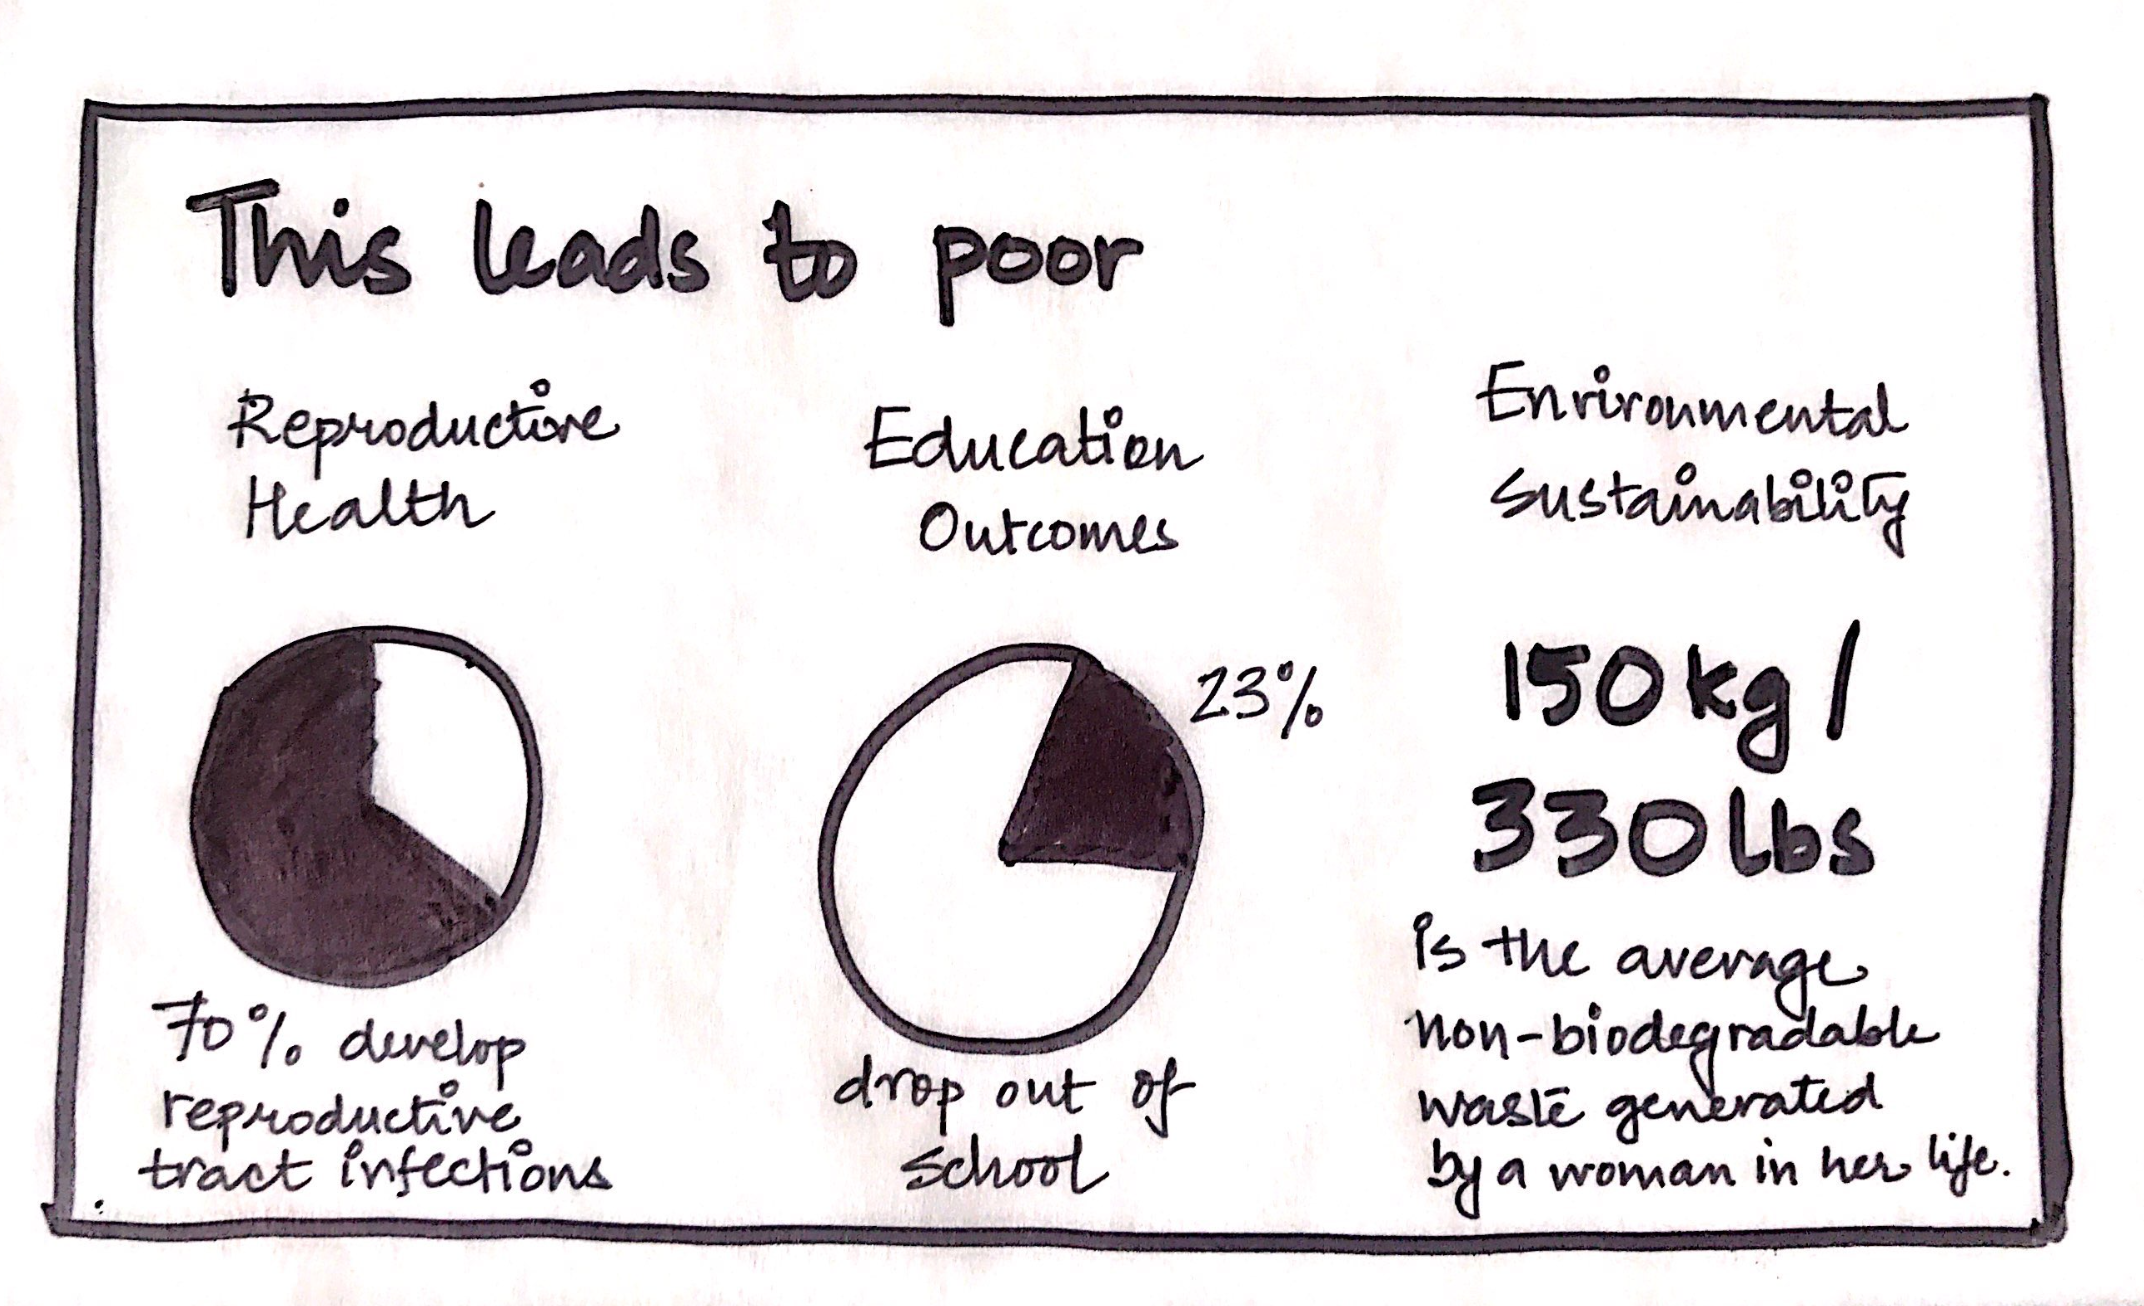 This leads to poor
Reproductive
Health
70% develop
reproductive
tract infections
Education
Outcomes
23%
drop out of
school
Environmental
Sustainability
150 kg /
330 lbs
is the average
non-biodegradable
waste generated
by a woman in her life.